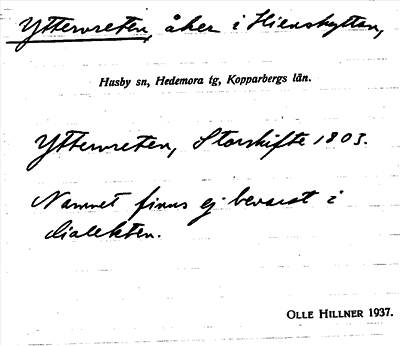 Yttervreten, åker i Hienshyttan,
Husby sn, Hedemora tg, Kopparbergs län.
Yttervreten, Storskifte 1803.
Namnet finns ej bevarat i
dialekten.
OLLE HILLNER 1937.